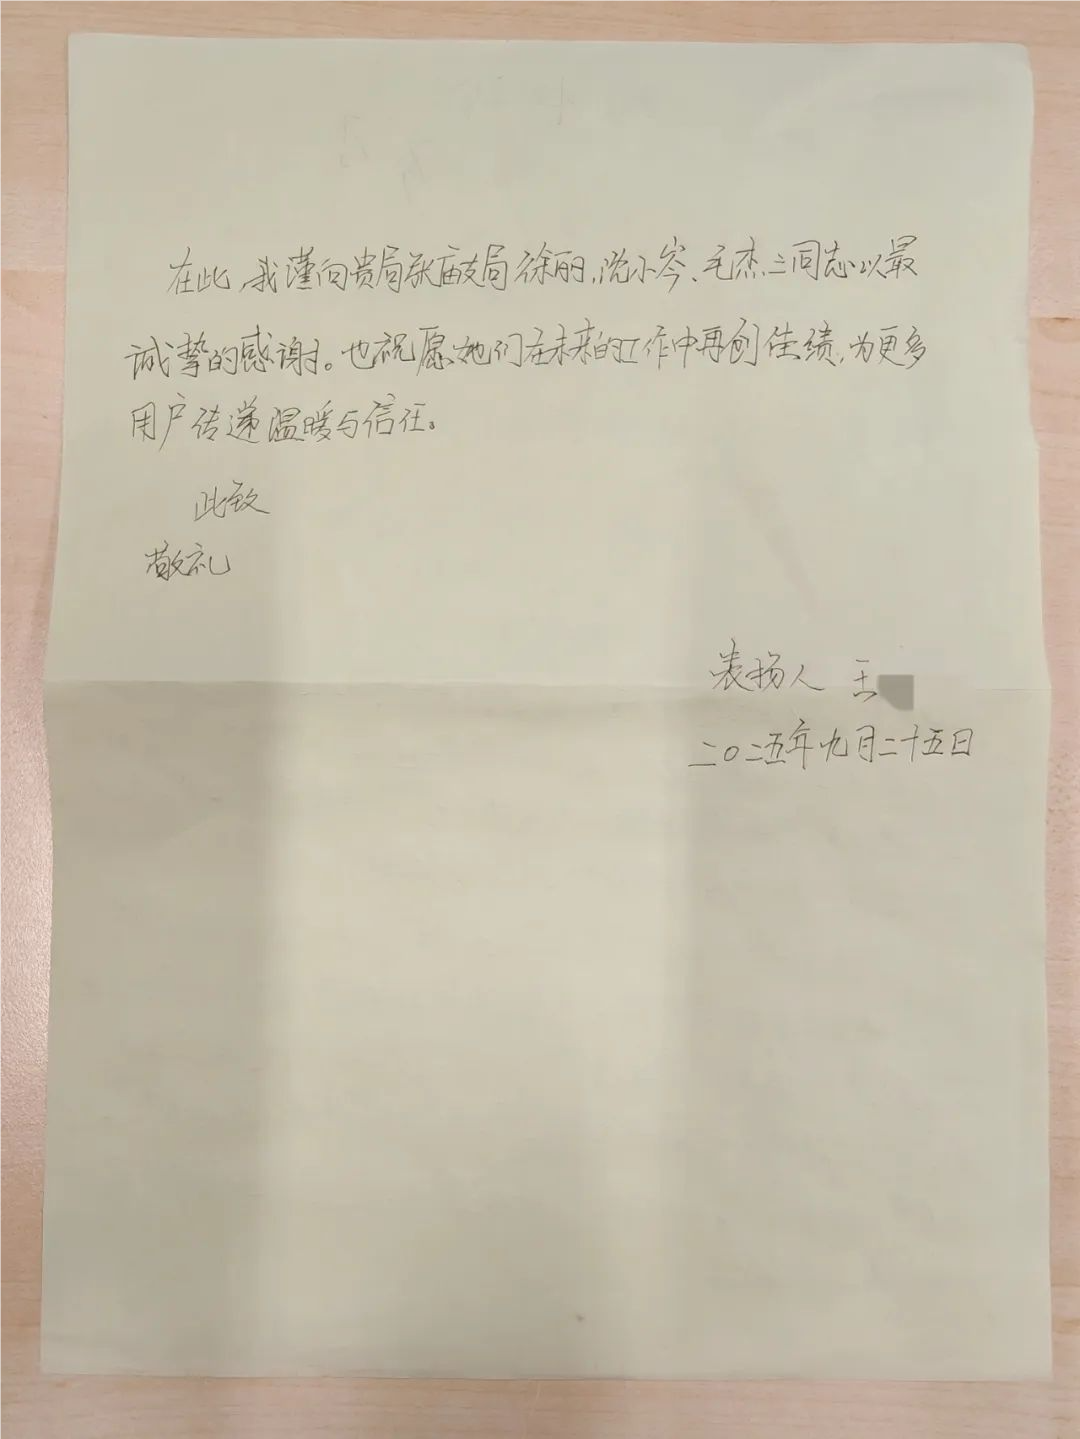 在此,我谨向贵局张庙支局徐丽,沈小岑、毛杰三同志以最
诚挚的感谢。也祝愿她们在未来的工作中再创佳绩,为更多
用户传递温暖与信任。
此致
敬礼
表扬人 王
二〇二五年九月二十五日